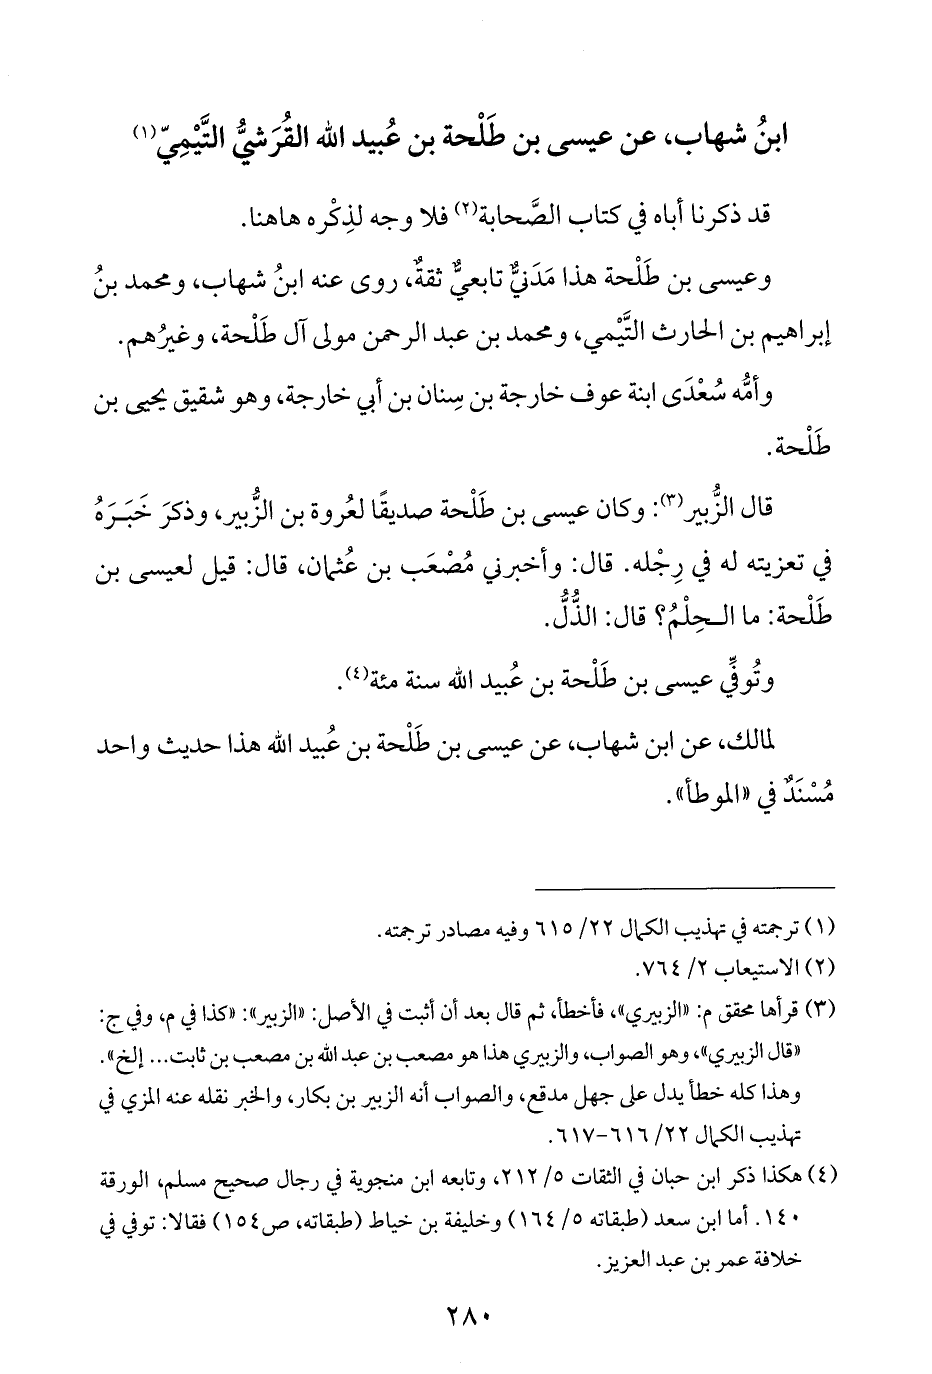 ابنُ شهاب، عن عيسى بن طَلْحة بن عُبيد الله القُرَشيُّ التَّيْمِيّ(١)
قد ذكرنا أباه في كتاب الصَّحابة(٢) فلا وجه لذِكْره هاهنا.
وعيسى بن طَلْحة هذا مَدَنيٌّ تابعيٌّ ثقةٌ، روى عنه ابنُ شهاب، ومحمد بنُ
إبراهيم بن الحارث التَّيْمي، ومحمد بن عبد الرحمن مولى آل طَلْحة، وغيرُهم.
وأمُّه سُعْدَى ابنة عوف خارجة بن سِنان بن أبي خارجة، وهو شقيق يحيى بن
طَلْحة.
قال الزُّبير(٣): وكان عيسى بن طَلْحة صديقًا لعُروة بن الزُّبير، وذكرَ خَبَرَهُ
في تعزيته له في رِجْله. قال: وأخبرني مُصْعَب بن عُثمان، قال: قيل لعيسى بن
طَلْحة: ما الحِلْمُ؟ قال: الذُّلُّ.
وتُوفِّي عيسى بن طَلْحة بن عُبيد الله سنة مئة(٤).
لمالك، عن ابن شهاب، عن عيسى بن طَلْحة بن عُبيد الله هذا حديث واحد
مُسْنَدٌ في «الموطأ».
(١) ترجمته في تهذيب الكمال ٢٢/ ٦١٥ وفيه مصادر ترجمته.
(٢) الاستيعاب ٢/ ٧٦٤.
(٣) قرأها محقق م: «الزبيري»، فأخطأ، ثم قال بعد أن أثبت في الأصل: «الزبير»: «كذا في م، وفي ج:
«قال الزبيري»، وهو الصواب، والزبيري هذا هو مصعب بن عبد الله بن مصعب بن ثابت... إلخ».
وهذا كله خطأ يدل على جهل مدقع، والصواب أنه الزبير بن بكار، والخبر نقله عنه المزي في
تهذيب الكمال ٢٢/ ٦١٦-٦١٧.
(٤) هكذا ذكر ابن حبان في الثقات ٥/ ٢١٢، وتابعه ابن منجوية في رجال صحيح مسلم، الورقة
١٤٠. أما ابن سعد (طبقاته ٥/ ١٦٤) وخليفة بن خياط (طبقاته، ص١٥٤) فقالا: توفي في
خلافة عمر بن عبد العزيز.
٢٨٠